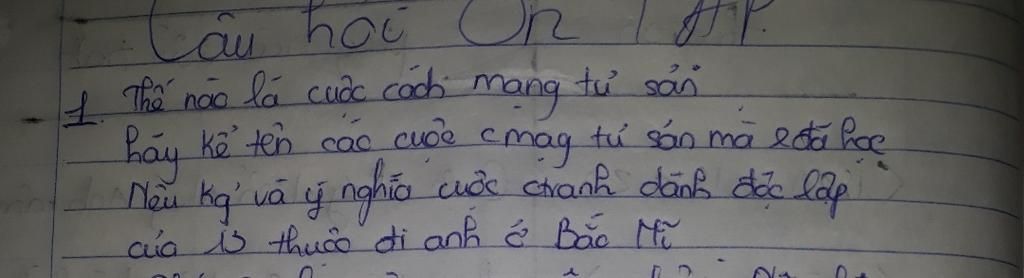 Câu hỏi Ôn TẬP.
1. Thế nào là cuộc cách mạng tư sản
hãy kể tên các cuộc cmag tư sản mà e đã học
Nêu kq' và ý nghĩa cuộc ctranh dành độc lập
của 13 thuộc đi anh ở Bắc Mĩ